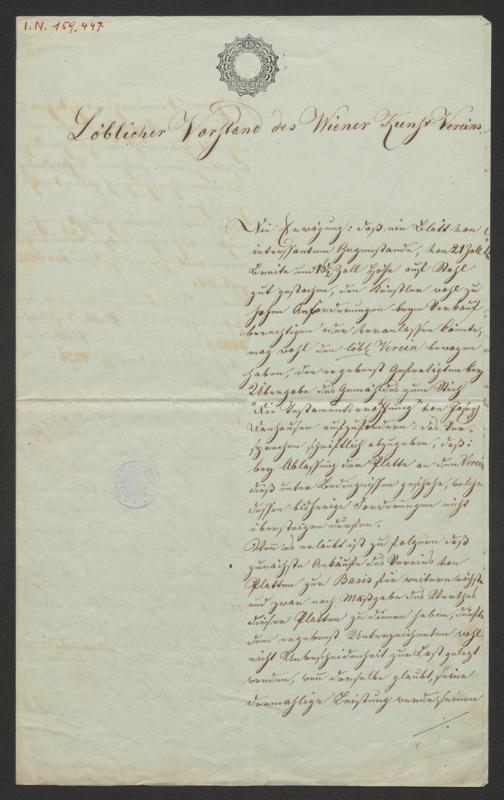 I.N. 159.447
Löblicher Vorstand des Wiener Kunst-Vereins.
Die Erwägung: daß ein Blatt von
interessantem Gegenstande, von 21 Zoll
Breite und Zoll Höhe auf Stahl
gut gestochen, den Künstler wohl zu
hohen Anforderungen beym Verkauf
berechtigen oder veranlassen könnte,
mag wohl den löbl Verein bewogen
haben, den ergebenst Gefertigten bey
Übergabe des Gemähldes zum Stich
"Die Testamentseröffnung" von Joseph
Danhauser aufzufordern: das Ver-
sprechen schriftlich abzugeben, daß:
bey Ablassung der Platte an den Verein
dieß unter Bedingnissen geschehe, welche
dessen bisherige Forderungen nicht
übersteigen dürften.
Wenn es erlaubt ist zu folgern daß
zunächste Ankäufe des Vereins von
Platten zur Basis für weitere
und zwar nach Maßgabe des Werthes
dieser Platten zu dienen haben, dürfte
dem ergebenst Unterzeichneten wohl
nicht Unbescheidenheit zur Last gelegt
werden, wenn derselbe glaubt, seine
dermahlige Leistung werde, seinen